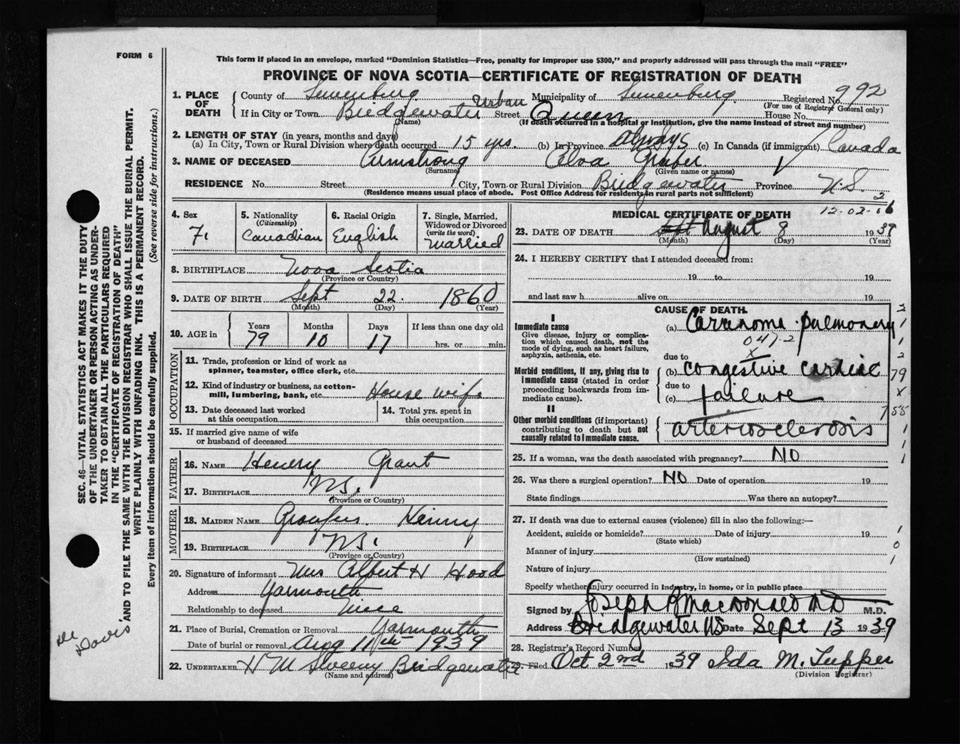 FORM 6
This form if placed in an envelope, marked "Dominion Statistics—Free, penalty for improper use $300," and properly addressed will pass through the mail "FREE"
PROVINCE OF NOVA SCOTIA—CERTIFICATE OF REGISTRATION OF DEATH
1. PLACE OF DEATH County of Lunenburg Municipality of Lunenburg Registered No. 992
(For use of Registrar General only)
If in City or Town Bridgewater Urban Street Queen House No.
(Name) (If death occurred in a hospital or institution, give the name instead of street and number)
2. LENGTH OF STAY (in years, months and days)
(a) In City, Town or Rural Division where death occurred 15 yrs. (b) In Province always (c) In Canada (if immigrant) Canada
3. NAME OF DECEASED Armstrong Alva
(Surname) (Given name or names)
RESIDENCE No. Street City, Town or Rural Division Bridgewater Province N.S.
(Residence means usual place of abode. Post Office Address for residents in rural parts not sufficient)
SEC. 46—VITAL STATISTICS ACT MAKES IT THE DUTY
OF THE UNDERTAKER OR PERSON ACTING AS UNDER-
TAKER TO OBTAIN ALL THE PARTICULARS REQUIRED
IN THE "CERTIFICATE OF REGISTRATION OF DEATH"
AND TO FILE THE SAME WITH THE DIVISION REGISTRAR WHO SHALL ISSUE THE BURIAL PERMIT.
WRITE PLAINLY WITH UNFADING INK. THIS IS A PERMANENT RECORD.
Every item of information should be carefully supplied. (See reverse side for instructions.)
4. Sex F.
5. Nationality (Citizenship) Canadian
6. Racial Origin English
7. Single, Married, Widowed or Divorced (write the word) Married
8. BIRTHPLACE Nova Scotia
(Province or Country)
9. DATE OF BIRTH Sept 22 1860
(Month) (Day) (Year)
10. AGE in Years 79 Months 10 Days 17 If less than one day old
hrs. or min.
OCCUPATION
11. Trade, profession or kind of work as spinner, teamster, office clerk, etc.
12. Kind of industry or business, as cotton-mill, lumbering, bank, etc. House wife
13. Date deceased last worked at this occupation
14. Total yrs. spent in this occupation
15. If married give name of wife or husband of deceased
FATHER
16. NAME Henery Grant
17. BIRTHPLACE N.S.
(Province or Country)
MOTHER
18. MAIDEN NAME
19. BIRTHPLACE N.S.
(Province or Country)
20. Signature of informant Mrs Albert H Hood
Address Yarmouth
Relationship to deceased niece
21. Place of Burial, Cremation or Removal Yarmouth
Date of burial or removal Aug 1939
22. UNDERTAKER H M Sweeny Bridgewater
(Name and address)
MEDICAL CERTIFICATE OF DEATH
12-02-
23. DATE OF DEATH August 8 1939
(Month) (Day) (Year)
24. I HEREBY CERTIFY that I attended deceased from:
19 to 19
and last saw h alive on 19
CAUSE OF DEATH
I
Immediate cause
Give disease, injury or complication which caused death, not the mode of dying, such as heart failure, asphyxia, asthenia, etc.
(a) Carcinoma pulmonary
047-2
due to
Morbid conditions, if any, giving rise to immediate cause (stated in order proceeding backwards from immediate cause).
(b) congestive cardiac
due to
(c) failure
II
Other morbid conditions (if important) contributing to death but not causally related to immediate cause.
arteriosclerosis
25. If a woman, was the death associated with pregnancy? NO
26. Was there a surgical operation? NO Date of operation 19
State findings Was there an autopsy?
27. If death was due to external causes (violence) fill in also the following:—
Accident, suicide or homicide? Date of injury 19
(State which)
Manner of injury
(How sustained)
Nature of injury
Specify whether injury occurred in industry, in home, or in public place
Signed by Joseph MacDonald MD M.D.
Address Bridgewater NS Date Sept 13 1939
28. Registrar's Record Number
29. Filed Oct 2nd 1939 Ida M. Tupper
(Division Registrar)